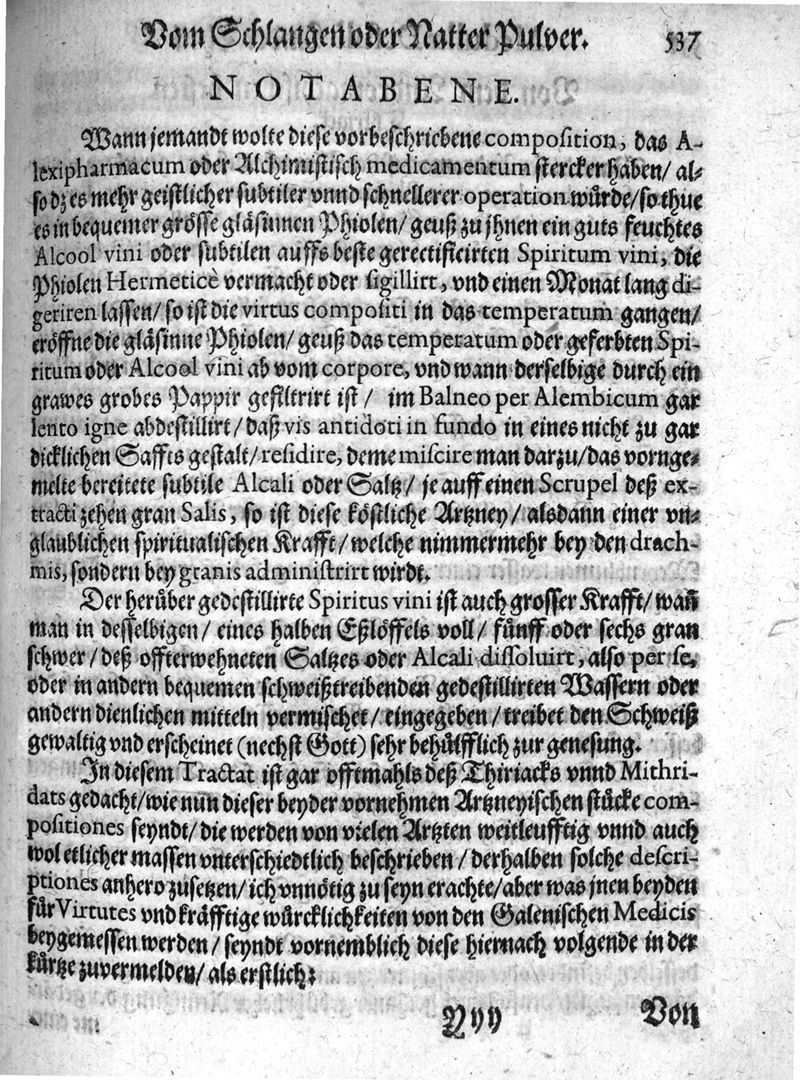 Vom Schlangen oder Natter Pulver. 537
NOTABENE.
Wann jemandt wolte diese vorbeschriebene composition, das A-
lexipharmacum oder Alchimistisch medicamentum stercker haben/ al-
so dz es mehr geistlicher subtiler vnnd schnellerer operation würde/ so thue
es in bequemer grösse gläsinnen Phiolen/ geuß zu jhnen ein guts feuchtes
Alcool vini oder subtilen auffs beste gerectificirten Spiritum vini, die
Phiolen Hermeticè vermacht oder sigillirt, vnd einen Monat lang di-
geriren lassen/ so ist die virtus compositi in das temperatum gangen/
eröffne die gläsinne Phiolen/ geuß das temperatum oder geferbten Spi-
ritum oder Alcool vini ab vom corpore, vnd wann derselbige durch ein
grawes grobes Pappir gefiltrirt ist/ im Balneo per Alembicum gar
lento igne abdestillirt/ daß vis antidoti in fundo in eines nicht zu gar
dicklichen Saffts gestalt/ residire, deme miscire man darzu/ das vornge-
melte bereitete subtile Alcali oder Saltz/ je auff einen Scrupel deß ex-
tracti zehen gran Salis, so ist diese köstliche Artzney/ alsdann einer vn-
glaublichen spiritualischen Krafft/ welche nimmermehr bey den drach-
mis, sondern bey granis administrirt wirdt.
Der herüber gedestillirte Spiritus vini ist auch grosser Krafft/ wañ
man in desselbigen/ eines halben Eßlöffels voll/ fünff oder sechs gran
schwer/ deß offterwehneten Saltzes oder Alcali dissoluirt, also per se,
oder in andern bequemen schweißtreibenden gedestillirten Wassern oder
andern dienlichen mitteln vermischet/ eingegeben/ treibet den Schweiß
gewaltig vnd erscheinet (nechst Gott) sehr behülfflich zur genesung.
In diesem Tractat ist gar offtmahls deß Thiriacks vnnd Mithri-
dats gedacht/ wie nun dieser beyder vornehmen Artzneyischen stücke com-
positiones seyndt/ die werden von vielen Artzten weitleufftig vnnd auch
wol etlicher massen vnterschiedtlich beschrieben/ derhalben solche descri-
ptiones anhero zusetzen/ ich vnnötig zu seyn erachte/ aber was jnen beyden
für Virtutes vnd kräfftige würcklichkeiten von den Galenischen Medicis
beygemessen werden/ seyndt vornemblich diese hiernach volgende in der
kürtze zuvermelden/ als erstlich:
Yyy Von